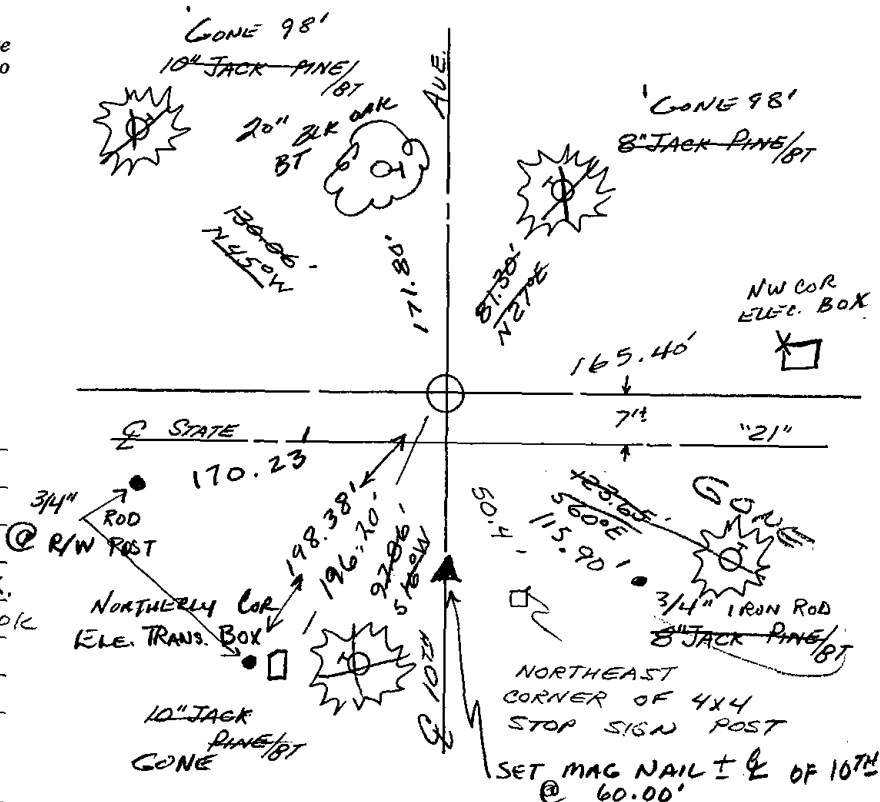 'GONE 98'
10" JACK PINE/BT
20" BLK OAK
BT
AVE.
'GONE 98'
8" JACK PINE/BT
130.06'
N45°W
171.80'
81.30'
N27°E
NW COR
ELEC. BOX
165.40'
7'±
℄ STATE
"21"
170.23'
3/4"
ROD
@ R/W POST
198.38'
196.20'
S16°W
50.4
123.65'
S60°E
115.90'
GONE
3/4" IRON ROD
8" JACK PINE/BT
NORTHERLY COR
ELE. TRANS. BOX
10" JACK
PINE/BT
GONE
℄ 10TH
NORTHEAST
CORNER OF 4X4
STOP SIGN POST
SET MAG NAIL ± ℄ OF 10TH
@ 60.00'